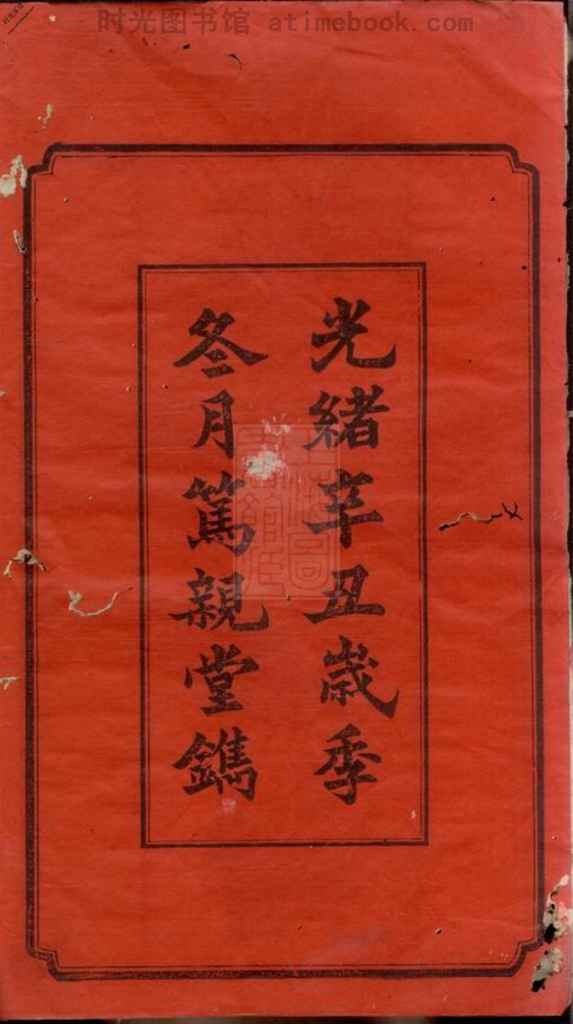 时光图书馆 atimebook.com
光緒辛丑歲季
冬月篤親堂鐫